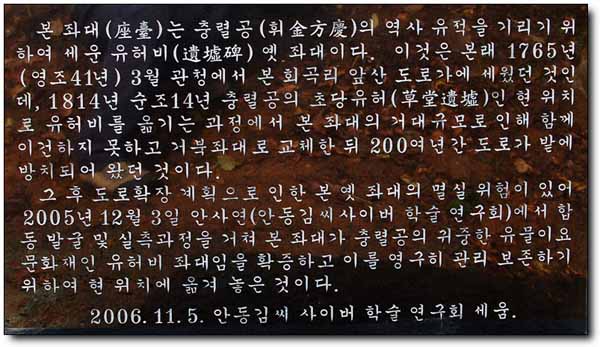 본 좌대(座臺)는 충렬공(휘金方慶)의 역사 유적을 기리기 위
하여 세운 유허비(遺墟碑) 옛 좌대이다. 이것은 본래 1765년
(영조41년) 3월 관청에서 본 회곡리 앞산 도로가에 세웠던 것인
데, 1814년 순조14년 충렬공의 초당유허(草堂遺墟)인 현 위치
로 유허비를 옮기는 과정에서 본 좌대의 거대규모로 인해 함께
이건하지 못하고 거북좌대로 교체한 뒤 200여년간 도로가 밭에
방치되어 왔던 것이다.
그 후 도로확장 계획으로 인한 본 옛 좌대의 멸실 위험이 있어
2005년 12월 3일 안사연(안동김씨사이버 학술 연구회)에서 합
동 발굴 및 실측과정을 거쳐 본 좌대가 충렬공의 귀중한 유물이요
문화재인 유허비 좌대임을 확증하고 이를 영구히 관리 보존하기
위하여 현 위치에 옮겨 놓은 것이다.
2006. 11. 5. 안동김씨 사이버 학술 연구회 세움.